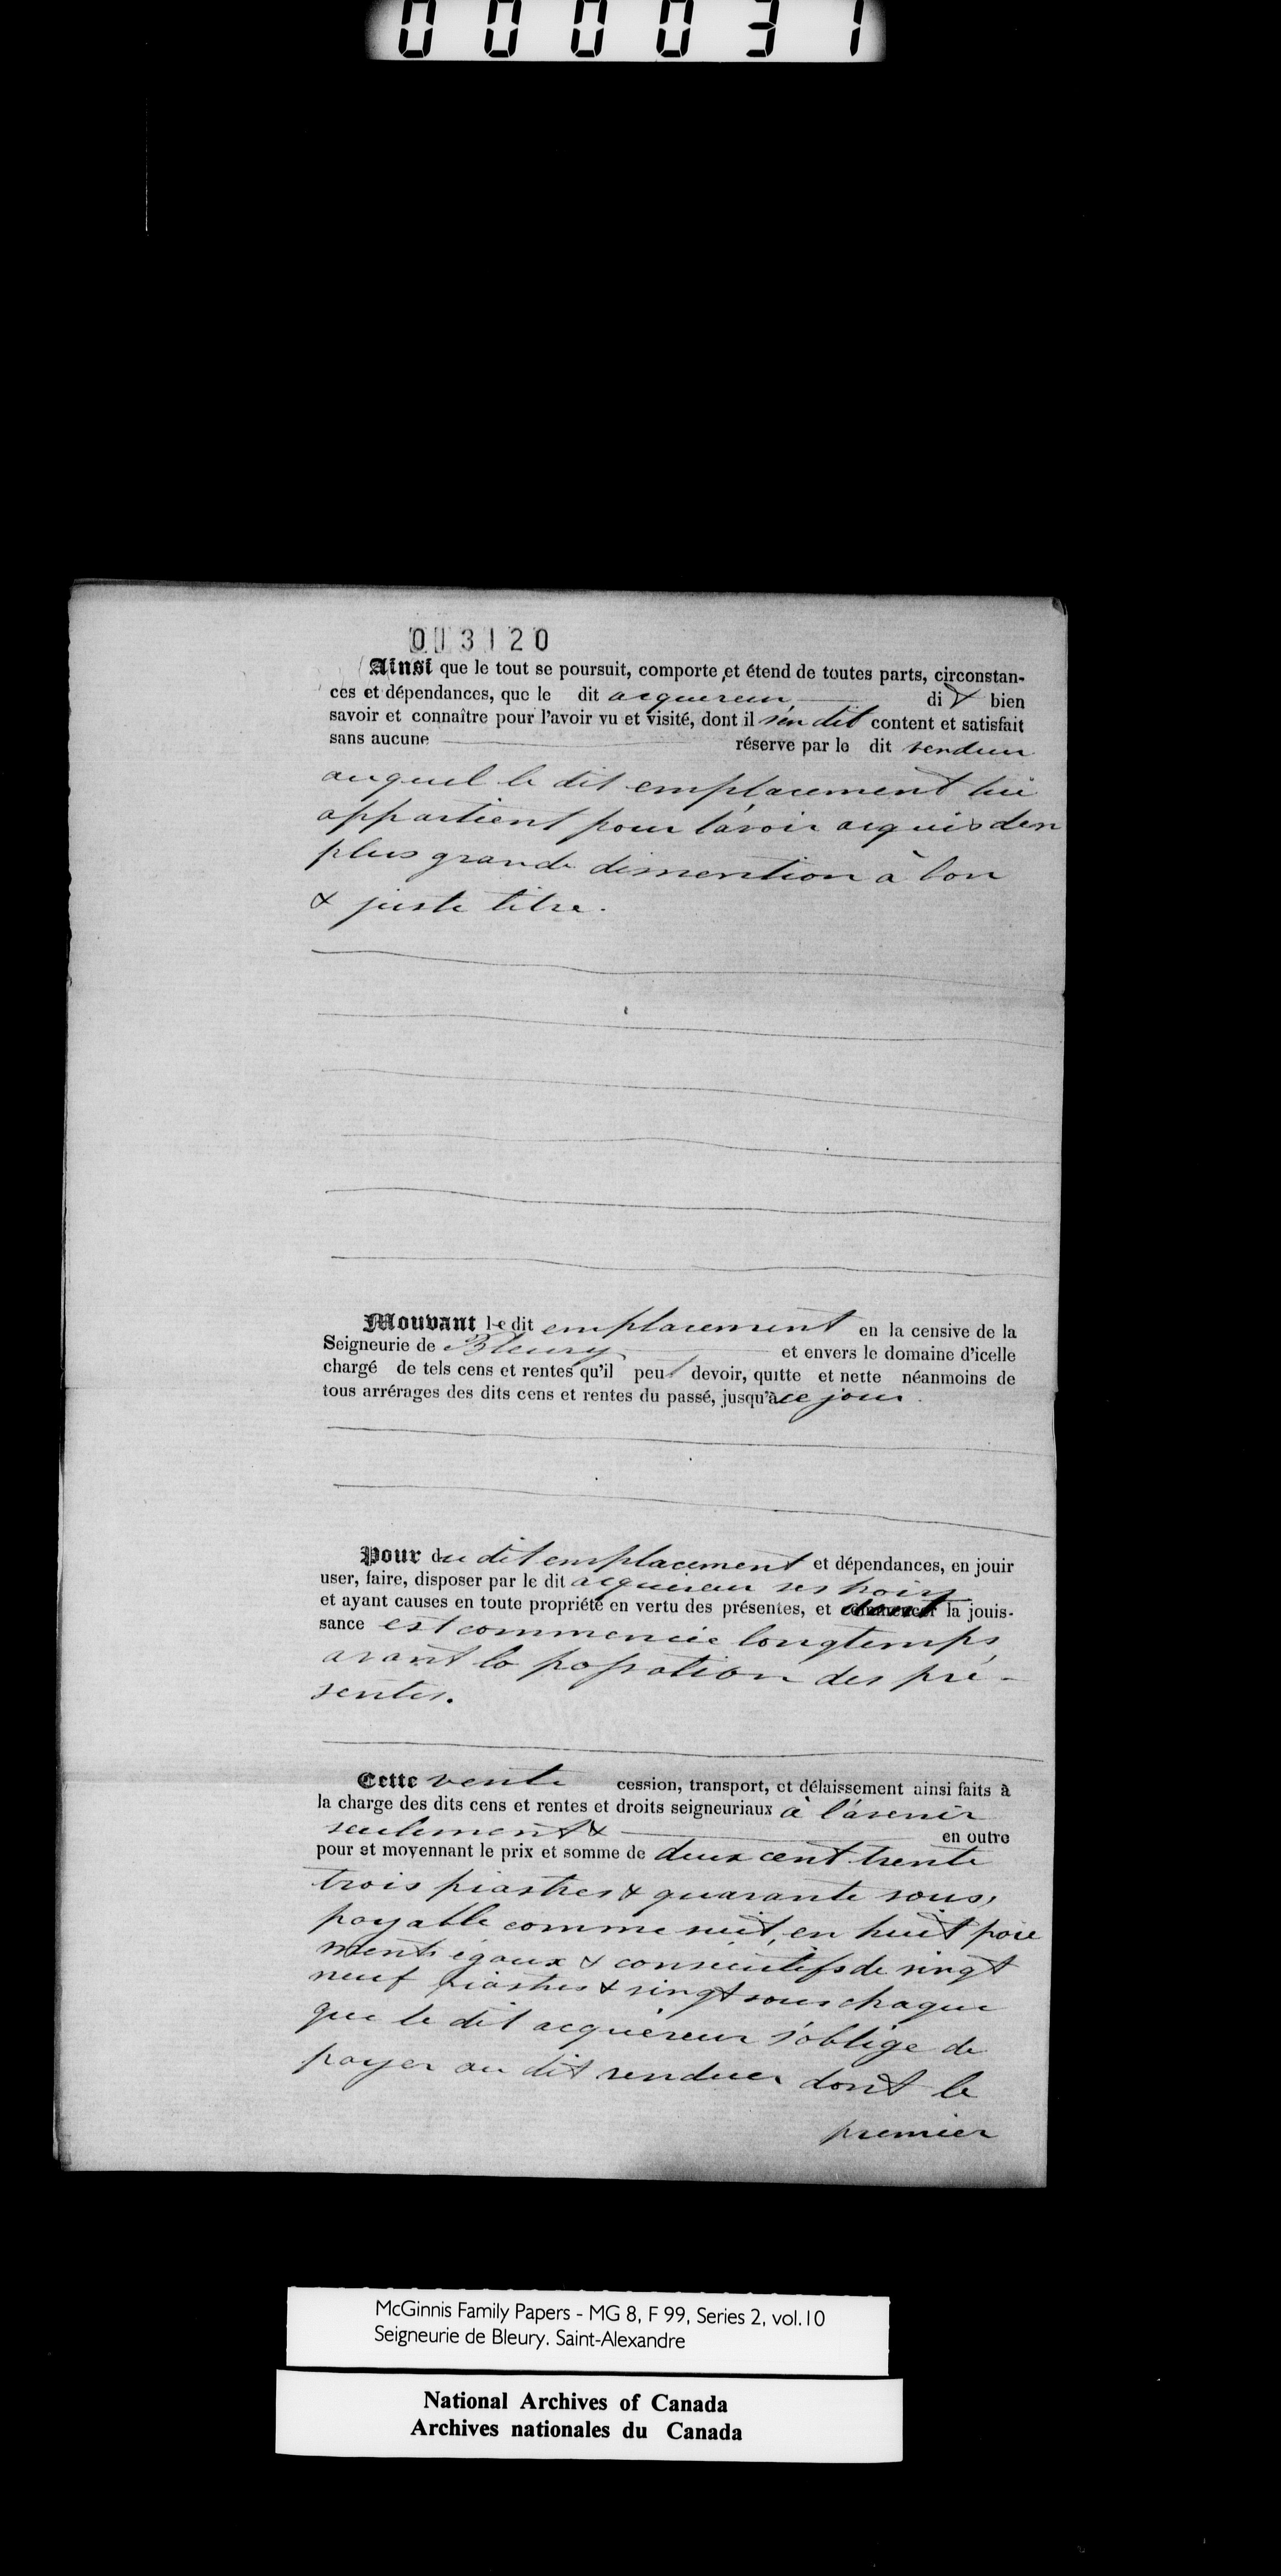 000031
013120
Ainsi que le tout se poursuit, comporte, et étend de toutes parts, circonstan-
ces et dépendances, que le dit acquereur, dit bien
savoir et connaître pour l'avoir vu et visité, dont il s'en dit content et satisfait
sans aucune réserve par le dit vendeur
auquel le dit emplacement lui
appartient pour l'avoir acquis d'en
plus grande dimention à bon
& juste titre.
Mouvant le dit emplacement en la censive de la
Seigneurie de Bleury et envers le domaine d'icelle
chargé de tels cens et rentes qu'il peut devoir, quitte et nette néanmoins de
tous arrérages des dits cens et rentes du passé, jusqu'à ce jour.
Pour du dit emplacement et dépendances, en jouir
user, faire, disposer par le dit acquereur ses hoirs
et ayant causes en toute propriété en vertu des présentes, et dont la jouis-
sance est commencée longtemps
avant la passation des pré-
sentes.
Cette vente cession, transport, et délaissement ainsi faits à
la charge des dits cens et rentes et droits seigneuriaux à l'avenir
seulement & en outre
pour et moyennant le prix et somme de deux cent trente
trois piastres & quarante sous,
payable comme suit, en huit paie
ments égaux & consécutifs de vingt
neuf piastres & vingt sous chaque
que le dit acquéreur s'oblige de
payer au dit vendeur dont le
premier
McGinnis Family Papers - MG 8, F 99, Series 2, vol.10
Seigneurie de Bleury. Saint-Alexandre
National Archives of Canada
Archives nationales du Canada